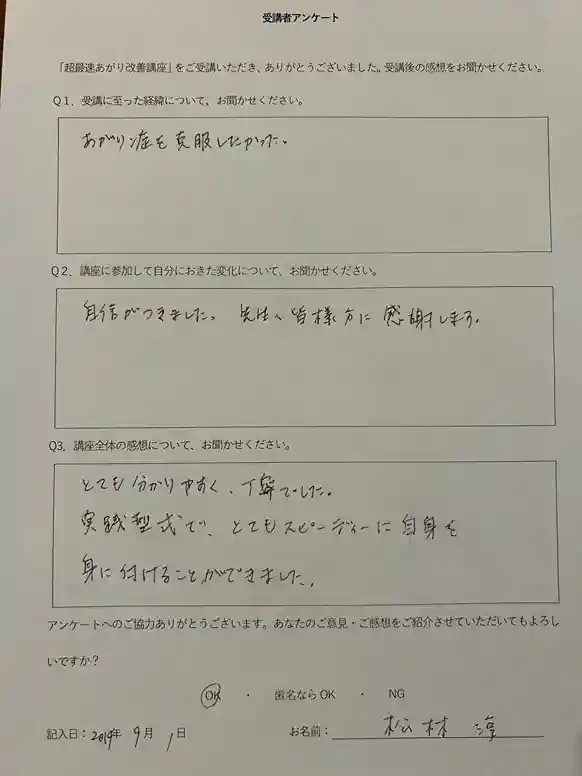 受講者アンケート
「超最速あがり改善講座」をご受講いただき、ありがとうございました。受講後の感想をお聞かせください。
Q1．受講に至った経緯について、お聞かせください。
あがり症を克服したかった。
Q2．講座に参加して自分におきた変化について、お聞かせください。
自信がつきました。先生、皆様方に感謝します。
Q3．講座全体の感想について、お聞かせください。
とても分かりやすく、丁寧でした。
実践型式で、とてもスピーディーに自身を
身に付けることができました。
アンケートへのご協力ありがとうございます。あなたのご意見・ご感想をご紹介させていただいてもよろし
いですか？
OK ・ 匿名ならOK ・ NG
記入日：2019年 9月 1日 お名前：松林 淳